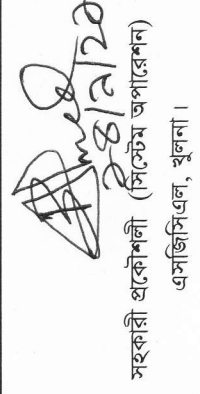 ২৪/২/২০
সহকারী প্রকৌশলী (সিস্টেম অপারেশন)
এসজিসিএল, খুলনা।